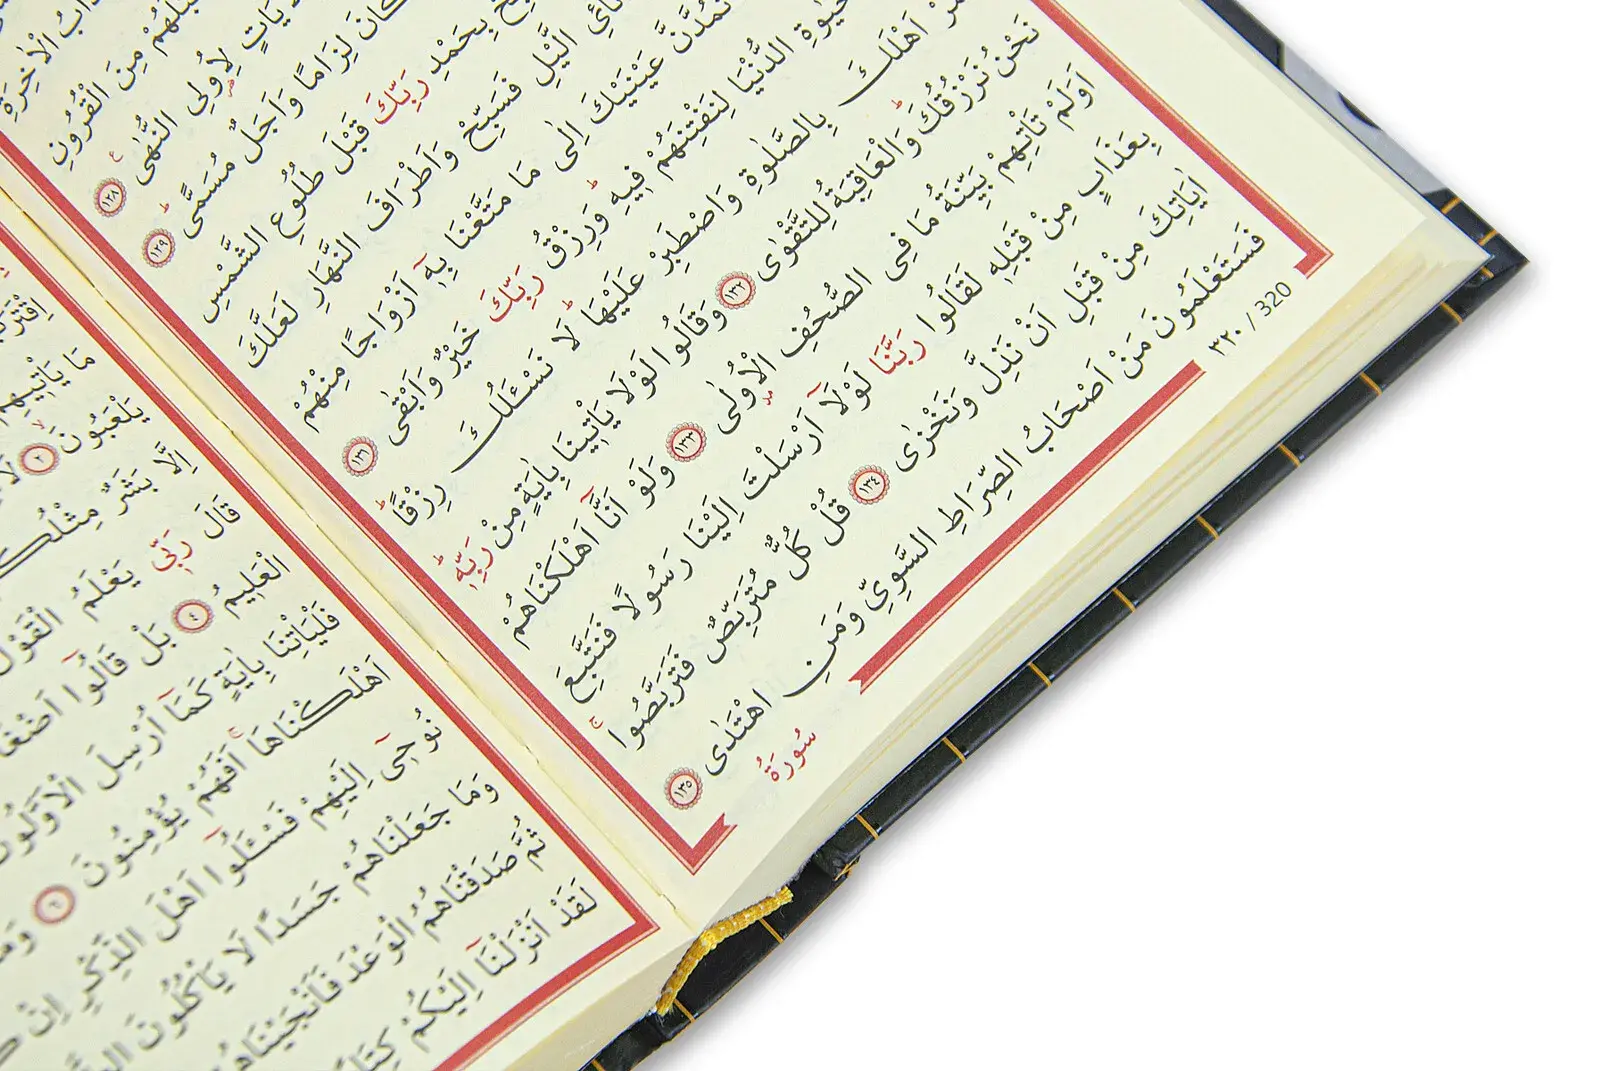 الْاٰخِرَةِ
قَبْلَهُمْ مِنَ الْقُرُونِ
لِاُولِي النُّهٰى ١٢٨
كَانَ لِزَامًا وَاَجَلٌ مُسَمًّى ١٢٩
بِحَمْدِ رَبِّكَ قَبْلَ طُلُوعِ الشَّمْسِ
الَّيْلِ فَسَبِّحْ وَاَطْرَافَ النَّهَارِ لَعَلَّكَ
تَمُدَّنَّ عَيْنَيْكَ اِلٰى مَا مَتَّعْنَا بِهٖٓ اَزْوَاجًا مِنْهُمْ
الدُّنْيَا لِنَفْتِنَهُمْ فِيهِ وَرِزْقُ رَبِّكَ خَيْرٌ وَاَبْقٰى ١٣١
اَهْلَكَ بِالصَّلٰوةِ وَاصْطَبِرْ عَلَيْهَا لَا نَسْـَٔلُكَ رِزْقًا
نَحْنُ نَرْزُقُكَ وَالْعَاقِبَةُ لِلتَّقْوٰى ١٣٢ وَقَالُوا لَوْلَا يَاْتِينَا بِاٰيَةٍ مِنْ رَبِّهٖ
اَوَلَمْ تَاْتِهِمْ بَيِّنَةُ مَا فِي الصُّحُفِ الْاُولٰى ١٣٣ وَلَوْ اَنَّٓا اَهْلَكْنَاهُمْ
بِعَذَابٍ مِنْ قَبْلِهٖ لَقَالُوا رَبَّنَا لَوْلَٓا اَرْسَلْتَ اِلَيْنَا رَسُولًا فَنَتَّبِعَ
اٰيَاتِكَ مِنْ قَبْلِ اَنْ نَذِلَّ وَنَخْزٰى ١٣٤ قُلْ كُلٌّ مُتَرَبِّصٌ فَتَرَبَّصُوا
فَسَتَعْلَمُونَ مَنْ اَصْحَابُ الصِّرَاطِ السَّوِيِّ وَمَنِ اهْتَدٰى ١٣٥
٣٢٠ / 320
سُورَةُ
مَا يَاْتِيهِمْ
يَلْعَبُونَ ٢
اِلَّا بَشَرٌ مِثْلُكُمْ
قَالَ رَبِّي يَعْلَمُ الْقَوْلَ
الْعَلِيمُ ٤ بَلْ قَالُٓوا
فَلْيَاْتِنَا بِاٰيَةٍ كَمَٓا اُرْسِلَ الْاَوَّلُونَ
اَهْلَكْنَاهَا اَفَهُمْ يُؤْمِنُونَ ٦
نُوحِٓي اِلَيْهِمْ فَسْـَٔلُٓوا اَهْلَ الذِّكْرِ اِنْ
وَمَا جَعَلْنَاهُمْ جَسَدًا لَا يَاْكُلُونَ
ثُمَّ صَدَقْنَاهُمُ الْوَعْدَ فَاَنْجَيْنَاهُمْ
لَقَدْ اَنْزَلْنَٓا اِلَيْكُمْ